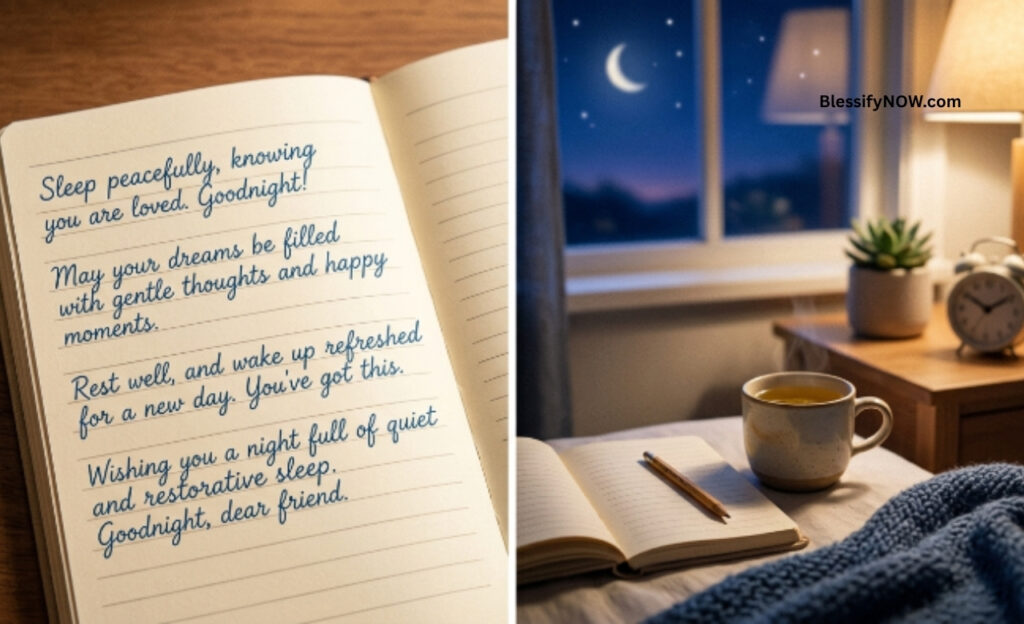 Sleep peacefully, knowing
you are loved. Goodnight!
May your dreams be filled
with gentle thoughts and happy
moments.
Rest well, and wake up refreshed
for a new day. You've got this.
Wishing you a night full of quiet
and restorative sleep.
Goodnight, dear friend.
BlessifyNOW.com